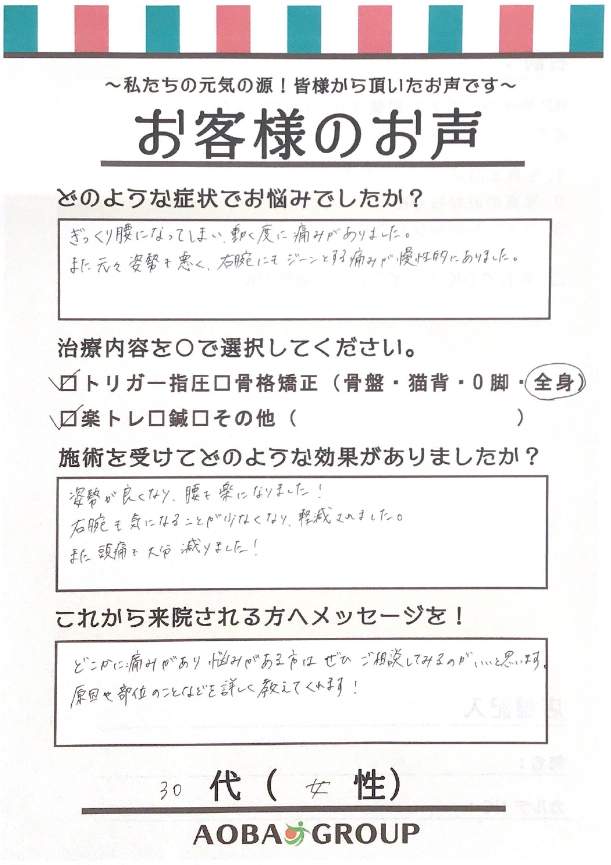 ～私たちの元気の源！皆様から頂いたお声です～
お客様のお声
どのような症状でお悩みでしたか？
ぎっくり腰になってしまい、動く度に痛みがありました。
また元々姿勢も悪く、右腕にもジーンとする痛みが慢性的にありました。
治療内容を〇で選択してください。
☑トリガー指圧□骨格矯正（骨盤・猫背・O脚・全身）
☑楽トレ□鍼□その他（　　　　　　　　　　）
施術を受けてどのような効果がありましたか？
姿勢が良くなり、腰も楽になりました！
右腕も気になることが少なくなり、軽減されました。
また頭痛も大分減りました！
これから来院される方へメッセージを！
どこかに痛みがあり悩みがある方はぜひご相談してみるのがいいと思います。
原因や部位のことなどを詳しく教えてくれます！
30代（女性）
AOBA GROUP